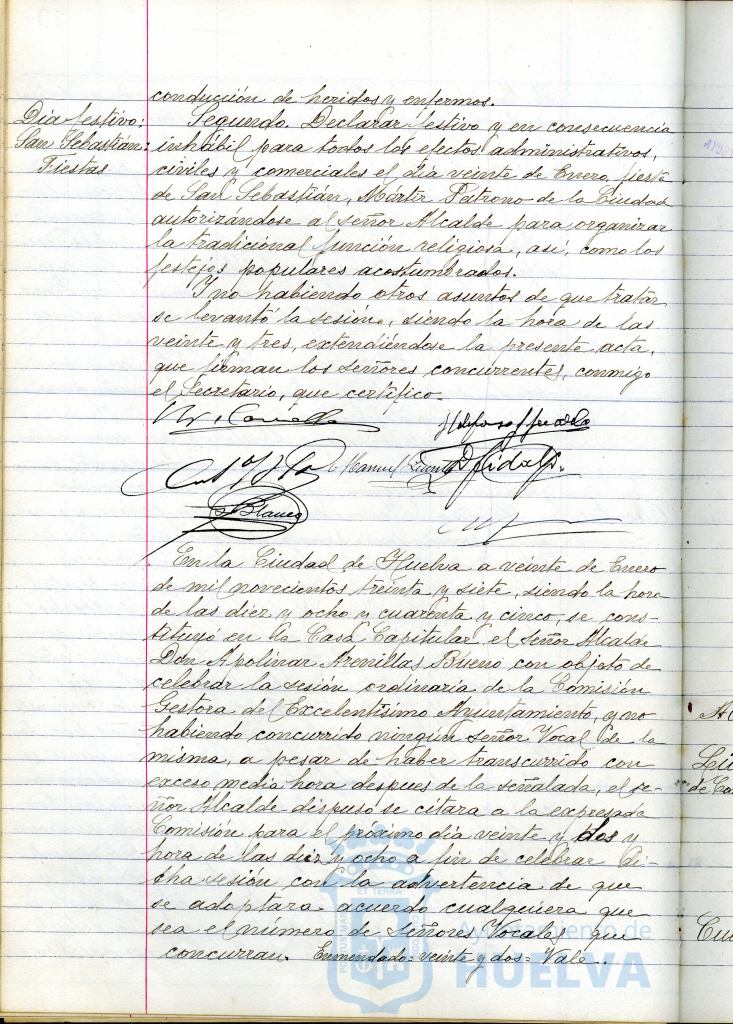 conducción de heridos y enfermos.
Dia festivo:
San Sebastián:
Fiestas
Segundo. Declarar festivo y en consecuencia
inhábil para todos los efectos administrativos,
civiles y comerciales el día veinte de Enero, fiesta
de San Sebastián, Mártir Patrono de la Ciudad
autorizándose al señor Alcalde para organizar
la tradicional función religiosa, así, como los
festejos populares acostumbrados.
Y no habiendo otros asuntos de que tratar
se levantó la sesión, siendo la hora de las
veinte y tres, extendiéndose la presente acta,
que firman los señores concurrentes, conmigo
el Secretario, que certifico.
Manuel
Hidalgo
Blanco
En la Ciudad de Huelva a veinte de Enero
de mil novecientos treinta y siete, siendo la hora
de las diez y ocho y cuarenta y cinco, se cons-
tituyó en la Casa Capitular el señor Alcalde
Don Apolinar Arenillas Bueno con objeto de
celebrar la sesión ordinaria de la Comisión
Gestora del Excelentísimo Ayuntamiento, y no
habiendo concurrido ningún señor Vocal de la
misma, a pesar de haber transcurrido con
exceso media hora despues de la señalada, el se-
ñor Alcalde dispuso se citara a la expresada
Comisión para el próximo día veinte y dos y
hora de las diez y ocho a fin de celebrar di-
cha sesión con la advertencia de que
se adoptara acuerdo cualquiera que
sea el número de señores Vocales que
concurran. Enmendado = veinte y dos = Vale.
Ayuntamiento de
HUELVA